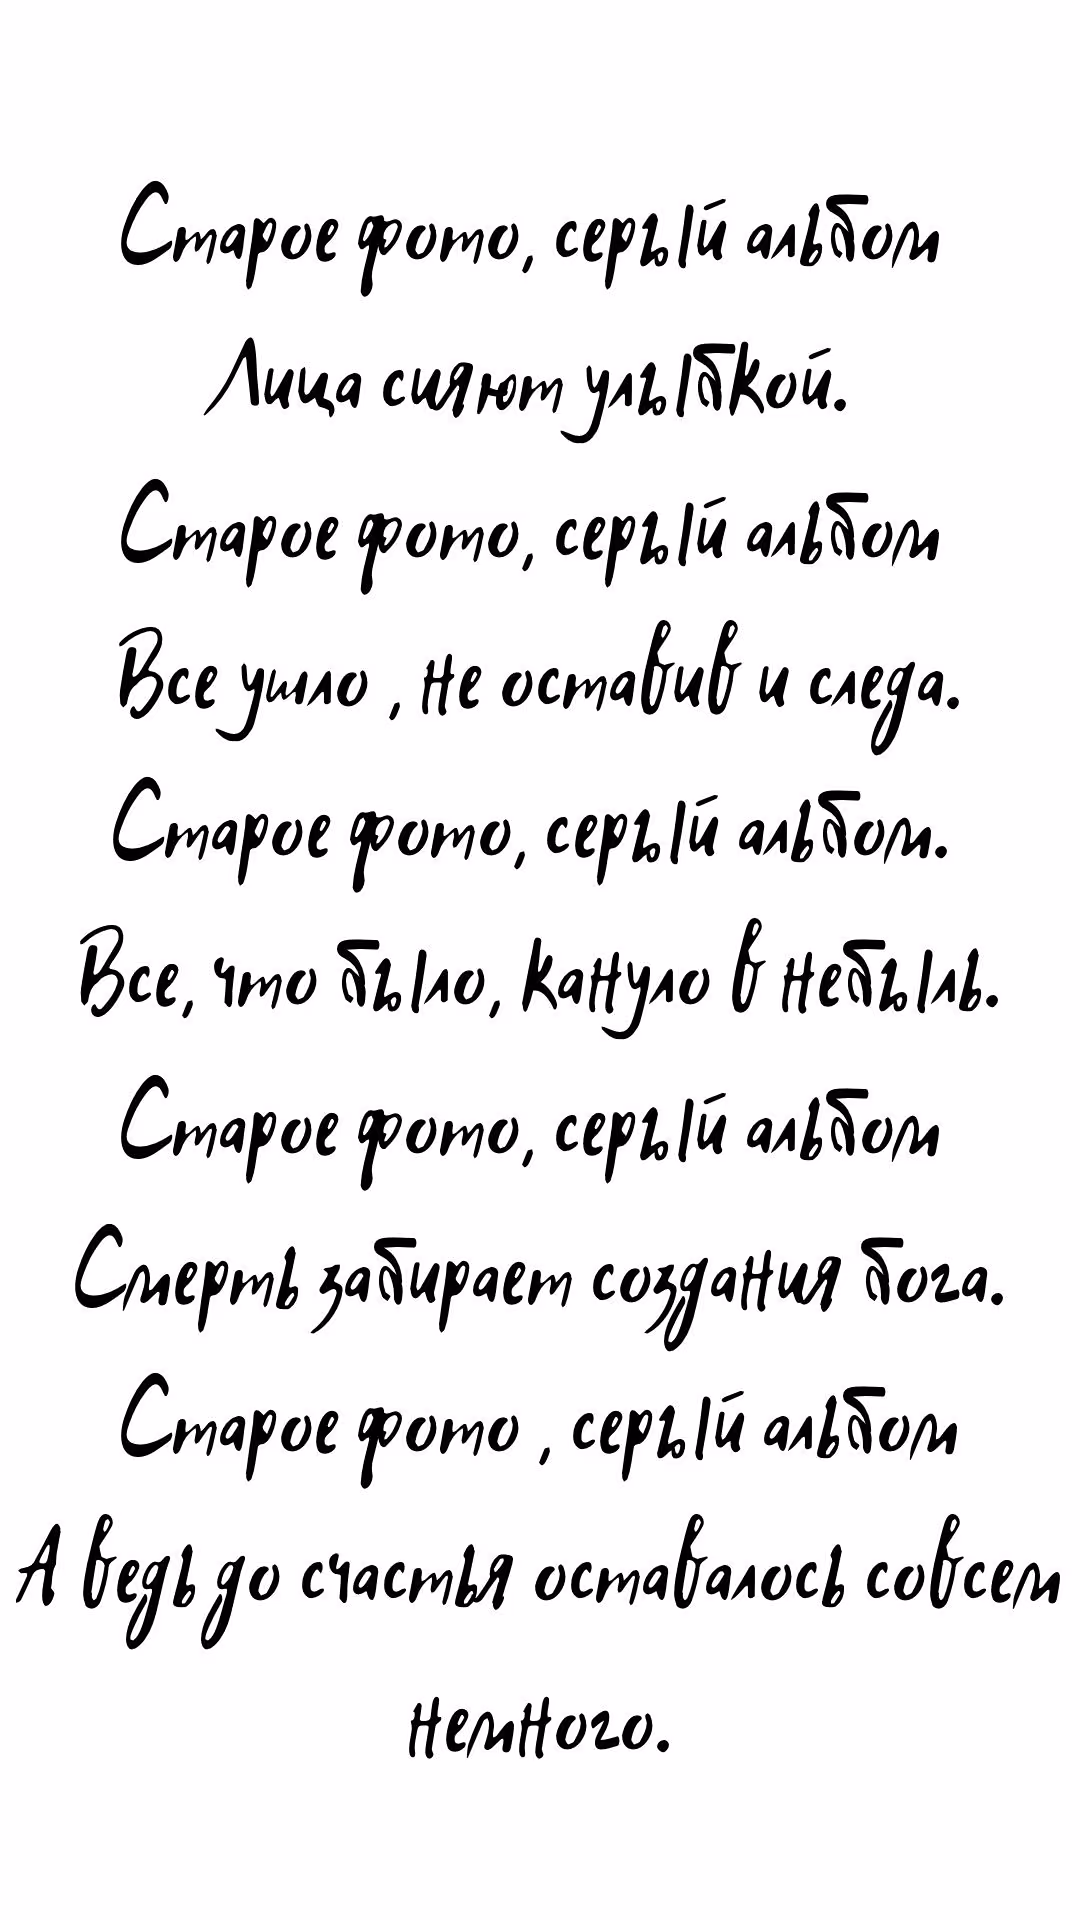 Старое фото, серый альбом
Лица сияют улыбкой.
Старое фото, серый альбом
Все ушло , не оставив и следа.
Старое фото, серый альбом.
Все, что было, кануло в небыль.
Старое фото, серый альбом
Смерть забирает создания бога.
Старое фото , серый альбом
А ведь до счастья оставалось совсем
немного.